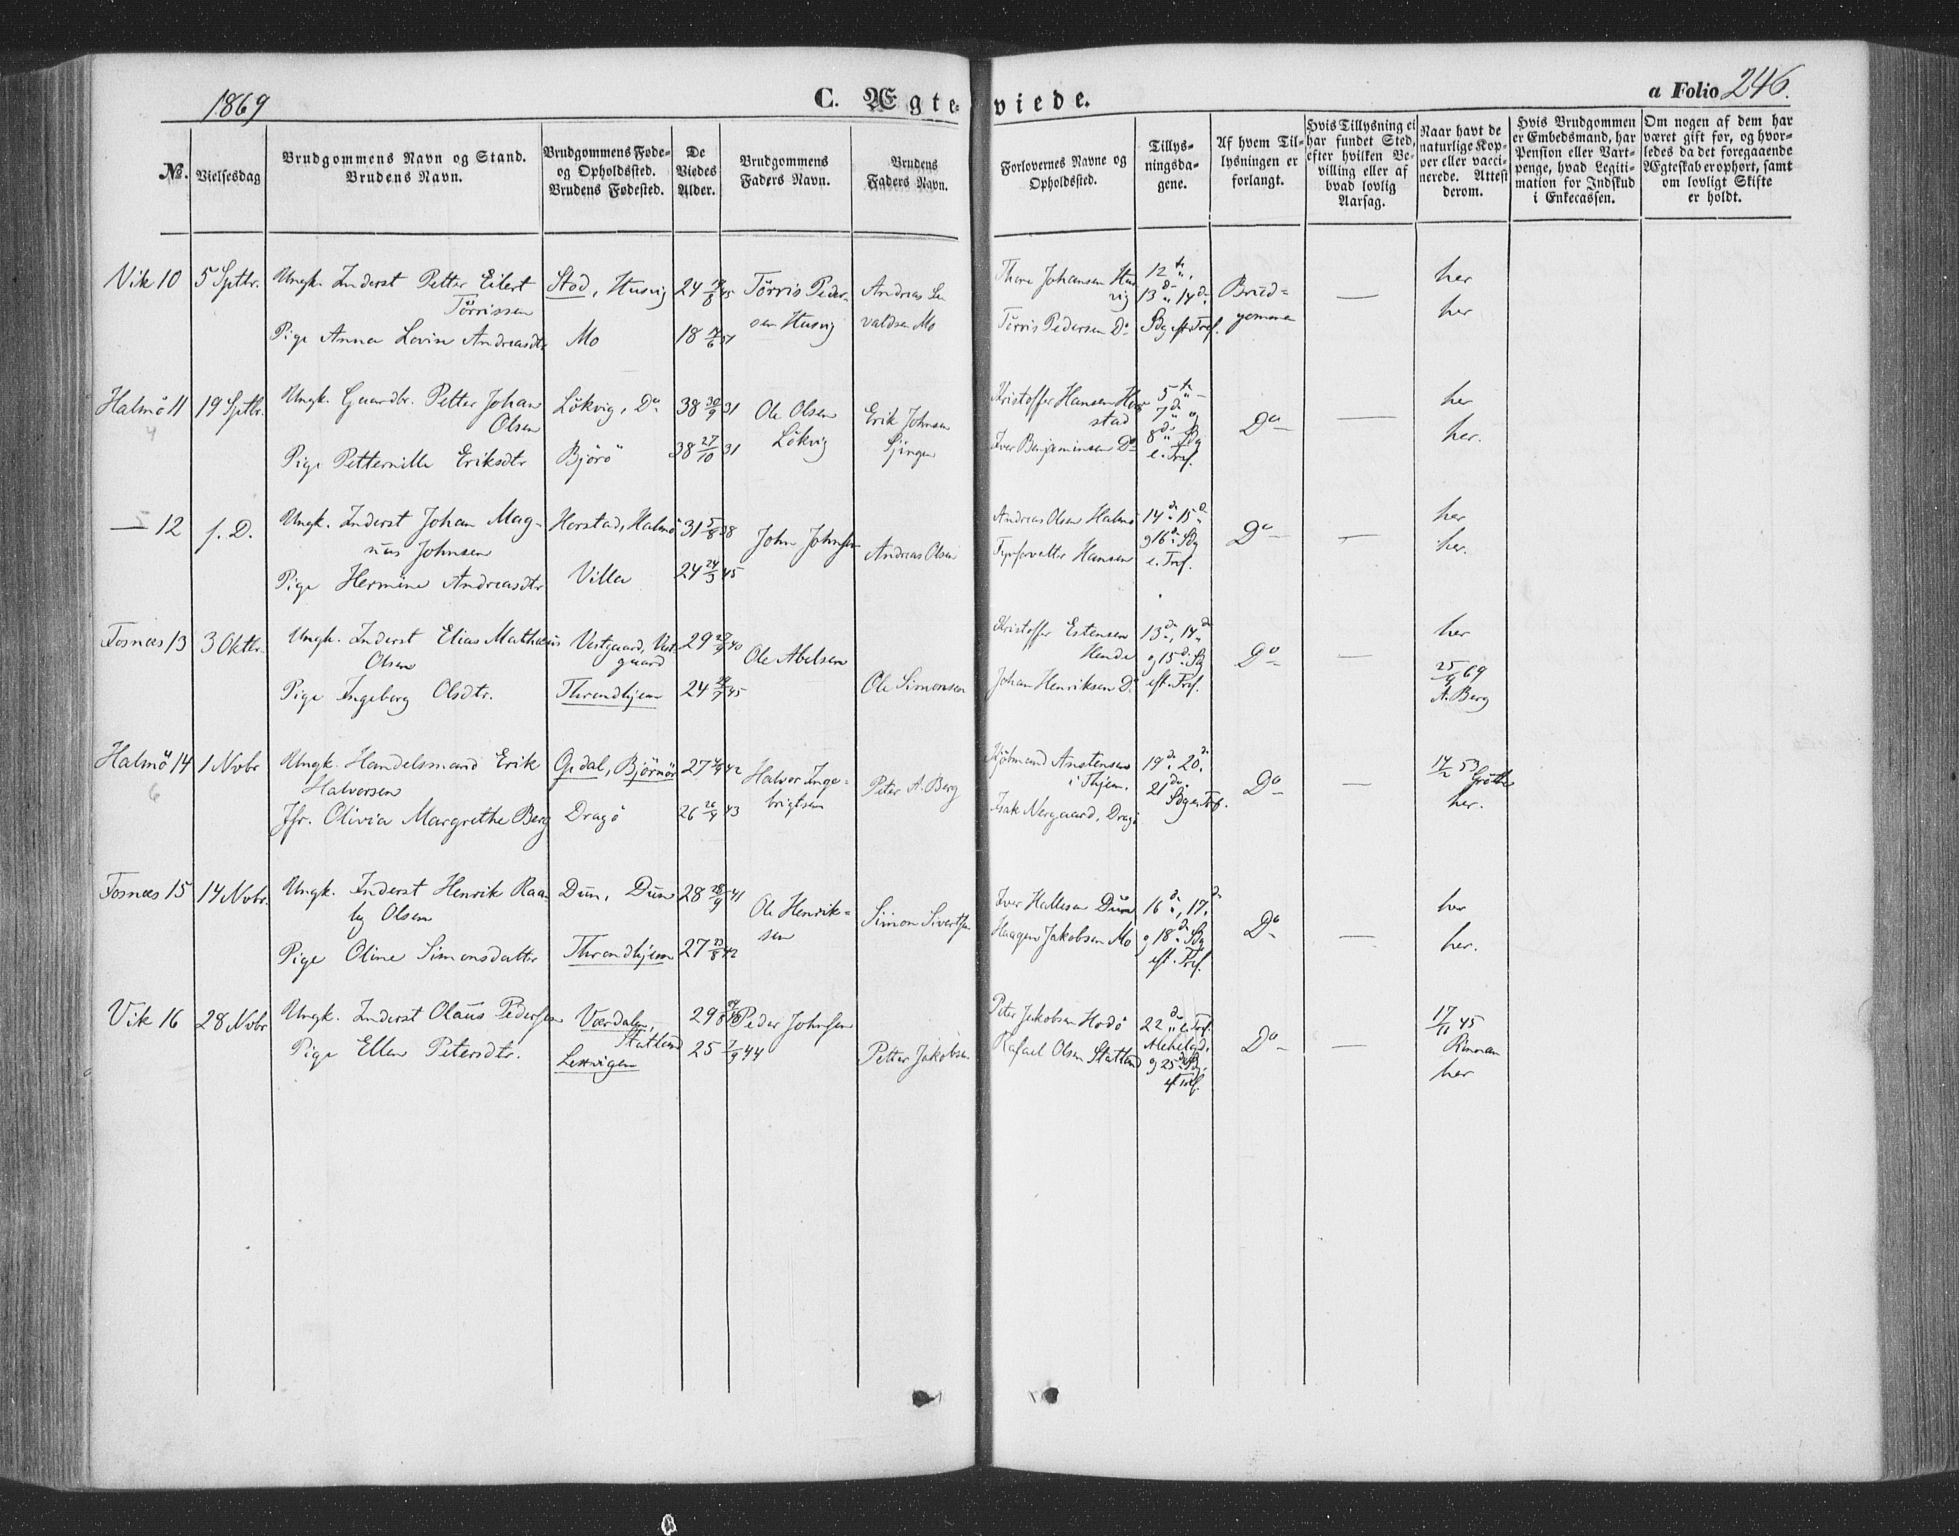 1869
C. Ægteviede.
a Folio 246.
No.
Vielsesdag
Brudgommens Navn og Stand.
Brudens Navn.
Brudgommens Føde-
og Opholdssted.
Brudens Fødested.
De
Viedes
Alder.
Brudgommens
Faders Navn.
Brudens
Faders Navn.
Forlovernes Navne og
Opholdssted.
Tillys-
ningsda-
gene.
Af hvem Til-
lysningen er
forlangt.
Hvis Tillysning ei
har fundet Sted,
efter hvilken Be-
villing eller af
hvad lovlig
Aarsag.
Naar havt de
naturlige Kop-
per eller vacci-
nerede. Attest
derom.
Hvis Brudgommen
er Embedsmand, har
Pension eller Vart-
penge, hvad Legiti-
mation for Indskud
i Enkecassen.
Om nogen af dem har
været gift før, og hvor-
ledes da det foregaaende
Ægteskab er ophørt, samt
om lovligt Skifte
er holdt.
Vik 10
5 Sptbr.
Ungk. Inderst Petter Eilert
Törrissen
Pige Anna Lovise Andreasdtr
Stod, Husvig
Mo
24 8 45
18 6 51
Törris Peder-
sen Husvig
Andreas
valdsen Mo
Thore Johansen Hus
vig
Törris Pedersen Do
12te,
13de 14de
Sdg eft. Tref.
Brud-
gommen
—
her
her
Halmö 11
4
19 Sptbr.
Ungk. Gaardbr. Petter Johan
Olsen
Pige Petternille Eriksdtr
Lökvig, Do
Björö
38 30/9 31
38 27/10 31
Ole Olsen
Lökvig
Erik Johnsen
Kristoffer Hansen Hor
stad
Iver Benjaminsen Do
5te
7de og
8de Sdg
e. Tref.
Do
—
her
her.
— 12
5
s. D.
Ungk. Inderst Johan Mag-
nus Johnsen
Pige Hermine Andreasdtr
Horstad, Halmö
Villa
31 5/8 38
24 24/3 45
John Johnsen
Andreas Olsen
Andreas Olsen Halmö
Fyrforvalter Hansen
14de 15de
og 16de Sdg
e. Tref.
Do
—
her
her.
Fosnæs 13
3 Oktbr.
Ungk. Inderst Elias Mathæus
Olsen
Pige Ingeborg Olsdtr.
Vestgaard, Vest-
gaard
Throndhjem
29 40
24 45
Ole Abelsen
Ole Simonsen
Kristoffer Estensen
Hende
Johan Henriksen Do
13de, 14de
og 15de Sdg
eft. Tref.
Do
—
her
25/9 69
A. Berg
Halmö 14
6
1 Nvbr
Ungk. Handelsmand Erik
Halvorsen
Jfr. Olivia Margrethe Berg
Opdal, Björnör
Dragö
27 42
26 43
Halvor Inge-
brigtsen
Peter A. Berg
Anstensen
i Thjem.
Isak Nergaard, Dragö
19de 20de
21de
Sdg e. Tref.
Do
—
14/2 53
her.
Fosnæs 15
14 Nvbr.
Ungk. Inderst Henrik Raa-
by Olsen
Pige Oline Simonsdatter
Dun, Dun
Throndhjem
28 28/9 41
27 23/8 42
Ole Henrik-
sen
Simon Sivertsen
Iver Hallesen Dun
Haagen Jakobsen Mo
16de, 17de
og 18de Sdg
eft. Tref.
Do
—
her
her.
Vik 16
28 Nvbr
Ungk. Inderst Olaus Pedersen
Pige Ellen Petersdtr.
Værdalen,
Statland
Lexvigen
29
25 7/9 44
Peder Johnsen
Petter Jakobsen
Peter Jakobsen Hodö
Rafael Olsen Statland
22de e. Tref.
og 25de Sdg.
ef Tref.
Do
—
17/11 45
Rinnan
her